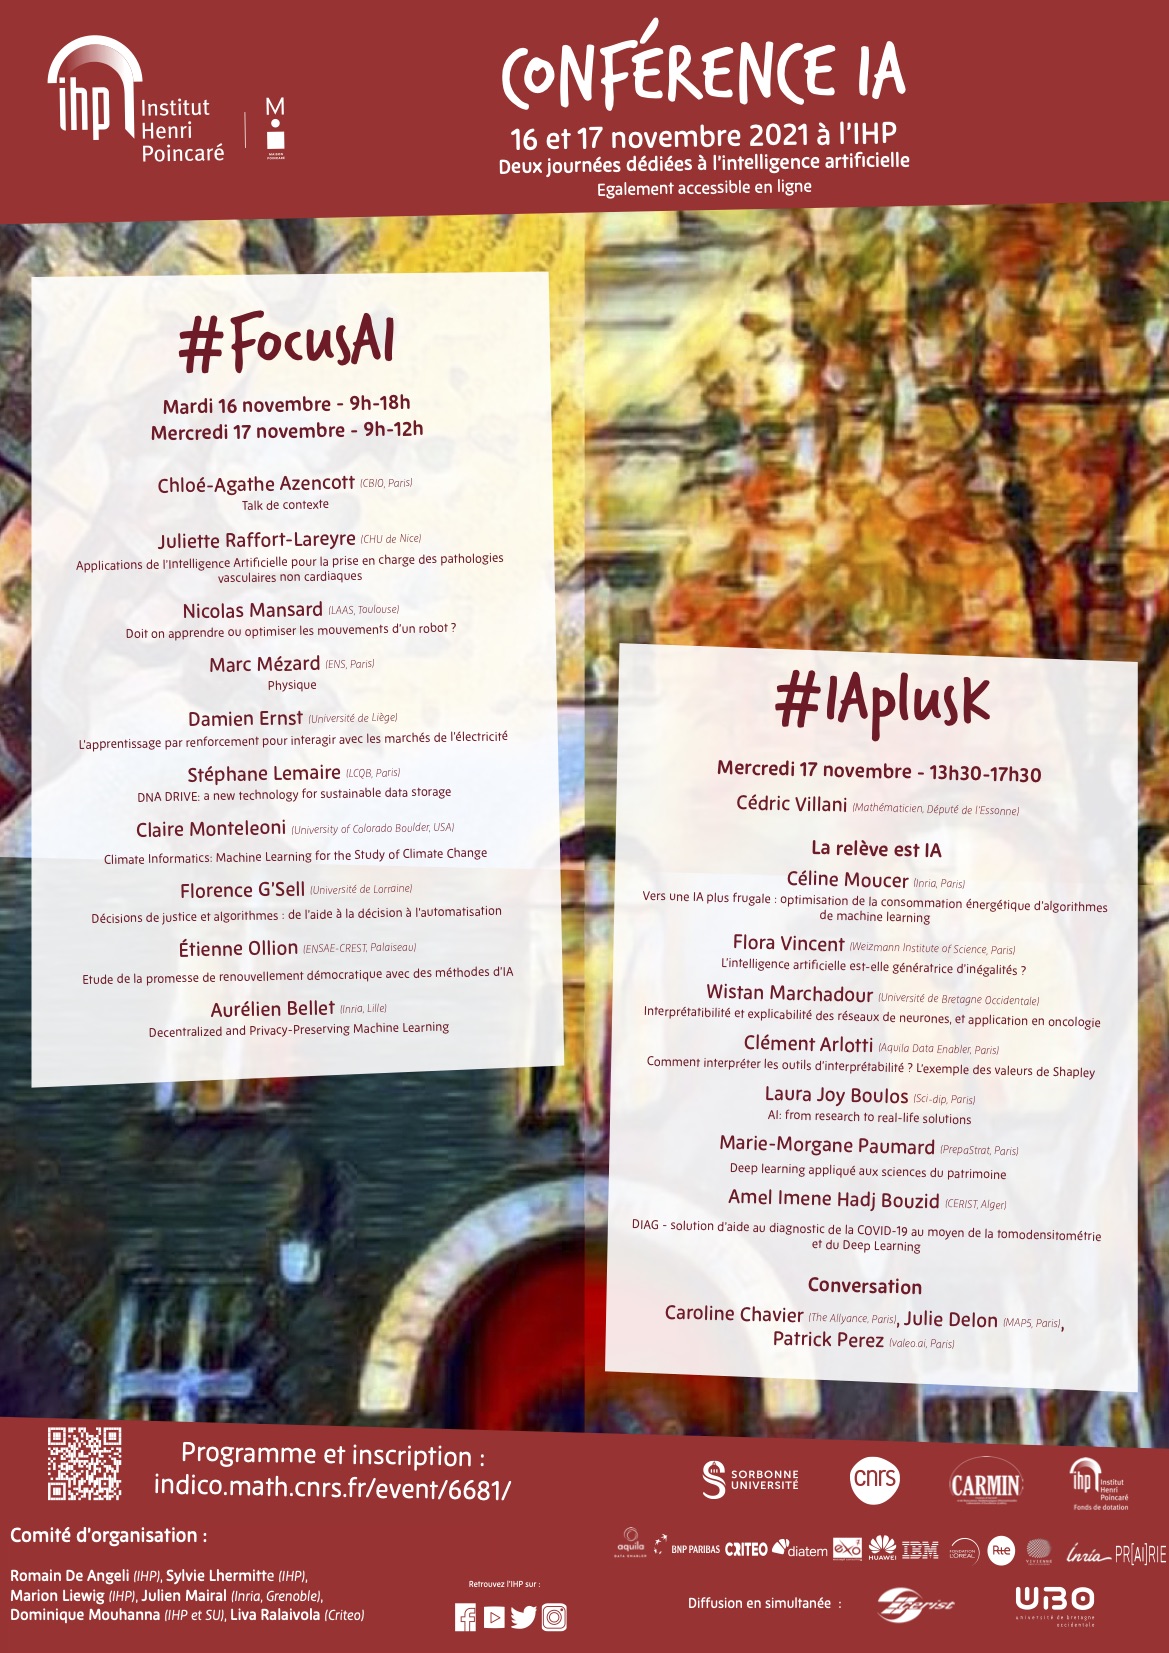 ihp
Institut
Henri
Poincaré
MAISON
POINCARÉ
CONFÉRENCE IA
16 et 17 novembre 2021 à l'IHP
Deux journées dédiées à l'intelligence artificielle
Egalement accessible en ligne
#FocusAI
Mardi 16 novembre - 9h-18h
Mercredi 17 novembre - 9h-12h
Chloé-Agathe Azencott (CBIO, Paris)
Talk de contexte
Juliette Raffort-Lareyre (CHU de Nice)
Applications de l'Intelligence Artificielle pour la prise en charge des pathologies
vasculaires non cardiaques
Nicolas Mansard (LAAS, Toulouse)
Doit on apprendre ou optimiser les mouvements d'un robot ?
Marc Mézard (ENS, Paris)
Physique
Damien Ernst (Université de Liège)
L'apprentissage par renforcement pour interagir avec les marchés de l'électricité
Stéphane Lemaire (LCQB, Paris)
DNA DRIVE: a new technology for sustainable data storage
Claire Monteleoni (University of Colorado Boulder, USA)
Climate Informatics: Machine Learning for the Study of Climate Change
Florence G'Sell (Université de Lorraine)
Décisions de justice et algorithmes : de l'aide à la décision à l'automatisation
Étienne Ollion (ENSAE-CREST, Palaiseau)
Etude de la promesse de renouvellement démocratique avec des méthodes d'IA
Aurélien Bellet (Inria, Lille)
Decentralized and Privacy-Preserving Machine Learning
#IAplusK
Mercredi 17 novembre - 13h30-17h30
Cédric Villani (Mathématicien, Député de l'Essonne)
La relève est IA
Céline Moucer (Inria, Paris)
Vers une IA plus frugale : optimisation de la consommation énergétique d'algorithmes
de machine learning
Flora Vincent (Weizmann Institute of Science, Paris)
L'intelligence artificielle est-elle génératrice d'inégalités ?
Wistan Marchadour (Université de Bretagne Occidentale)
Interprétatibilité et explicabilité des réseaux de neurones, et application en oncologie
Clément Arlotti (Aquila Data Enabler, Paris)
Comment interpréter les outils d'interprétabilité ? L'exemple des valeurs de Shapley
Laura Joy Boulos (Sci-dip, Paris)
AI: from research to real-life solutions
Marie-Morgane Paumard (PrepaStrat, Paris)
Deep learning appliqué aux sciences du patrimoine
Amel Imene Hadj Bouzid (CERIST, Alger)
DIAG - solution d'aide au diagnostic de la COVID-19 au moyen de la tomodensitométrie
et du Deep Learning
Conversation
Caroline Chavier (The Allyance, Paris), Julie Delon (MAP5, Paris),
Patrick Perez (valeo.ai, Paris)
Programme et inscription :
indico.math.cnrs.fr/event/6681/
Comité d'organisation :
Romain De Angeli (IHP), Sylvie Lhermitte (IHP),
Marion Liewig (IHP), Julien Mairal (Inria, Grenoble),
Dominique Mouhanna (IHP et SU), Liva Ralaivola (Criteo)
Retrouvez l'IHP sur :
SORBONNE
UNIVERSITÉ
cnrs
CARMIN
ihp
Institut
Henri
Poincaré
Fonds de dotation
aquila
DATA ENABLER
BNP PARIBAS
CRITEO
diatem
exo
HUAWEI
IBM
FONDATION
L'ORÉAL
Rte
Inria
PR[AI]RIE
Diffusion en simultanée :
cerist
UBO
université de bretagne
occidentale